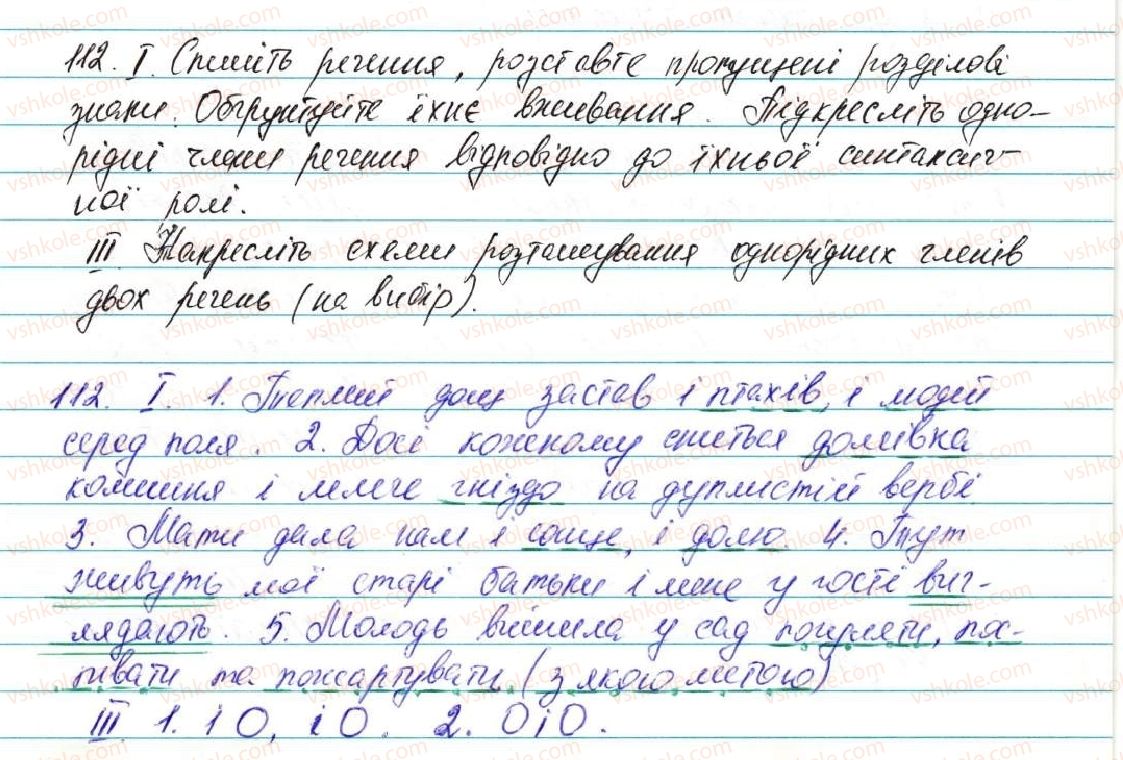 112. I. Спишіть речення, розставте пропущені розділові
знаки. Обґрунтуйте їхнє вживання. Підкресліть одно-
рідні члени речення відповідно до їхньої синтаксич-
ної ролі.
III Накресліть схеми розташування однорідних членів
двох речень (на вибір).
112. I. 1. Теплий дощ застав і птахів, і людей
серед поля. 2. Досі кожному сниться домівка
колишня і лелече гніздо на дуплистій вербі
3. Мати дала нам і сонце, і долю. 4. Тут
живуть мої старі батьки і мене у гості виг-
лядають. 5. Молодь вийшла у сад погуляти, пос-
півати та пожартувати (з якою метою)
III 1. і О, і О. 2. О і О.